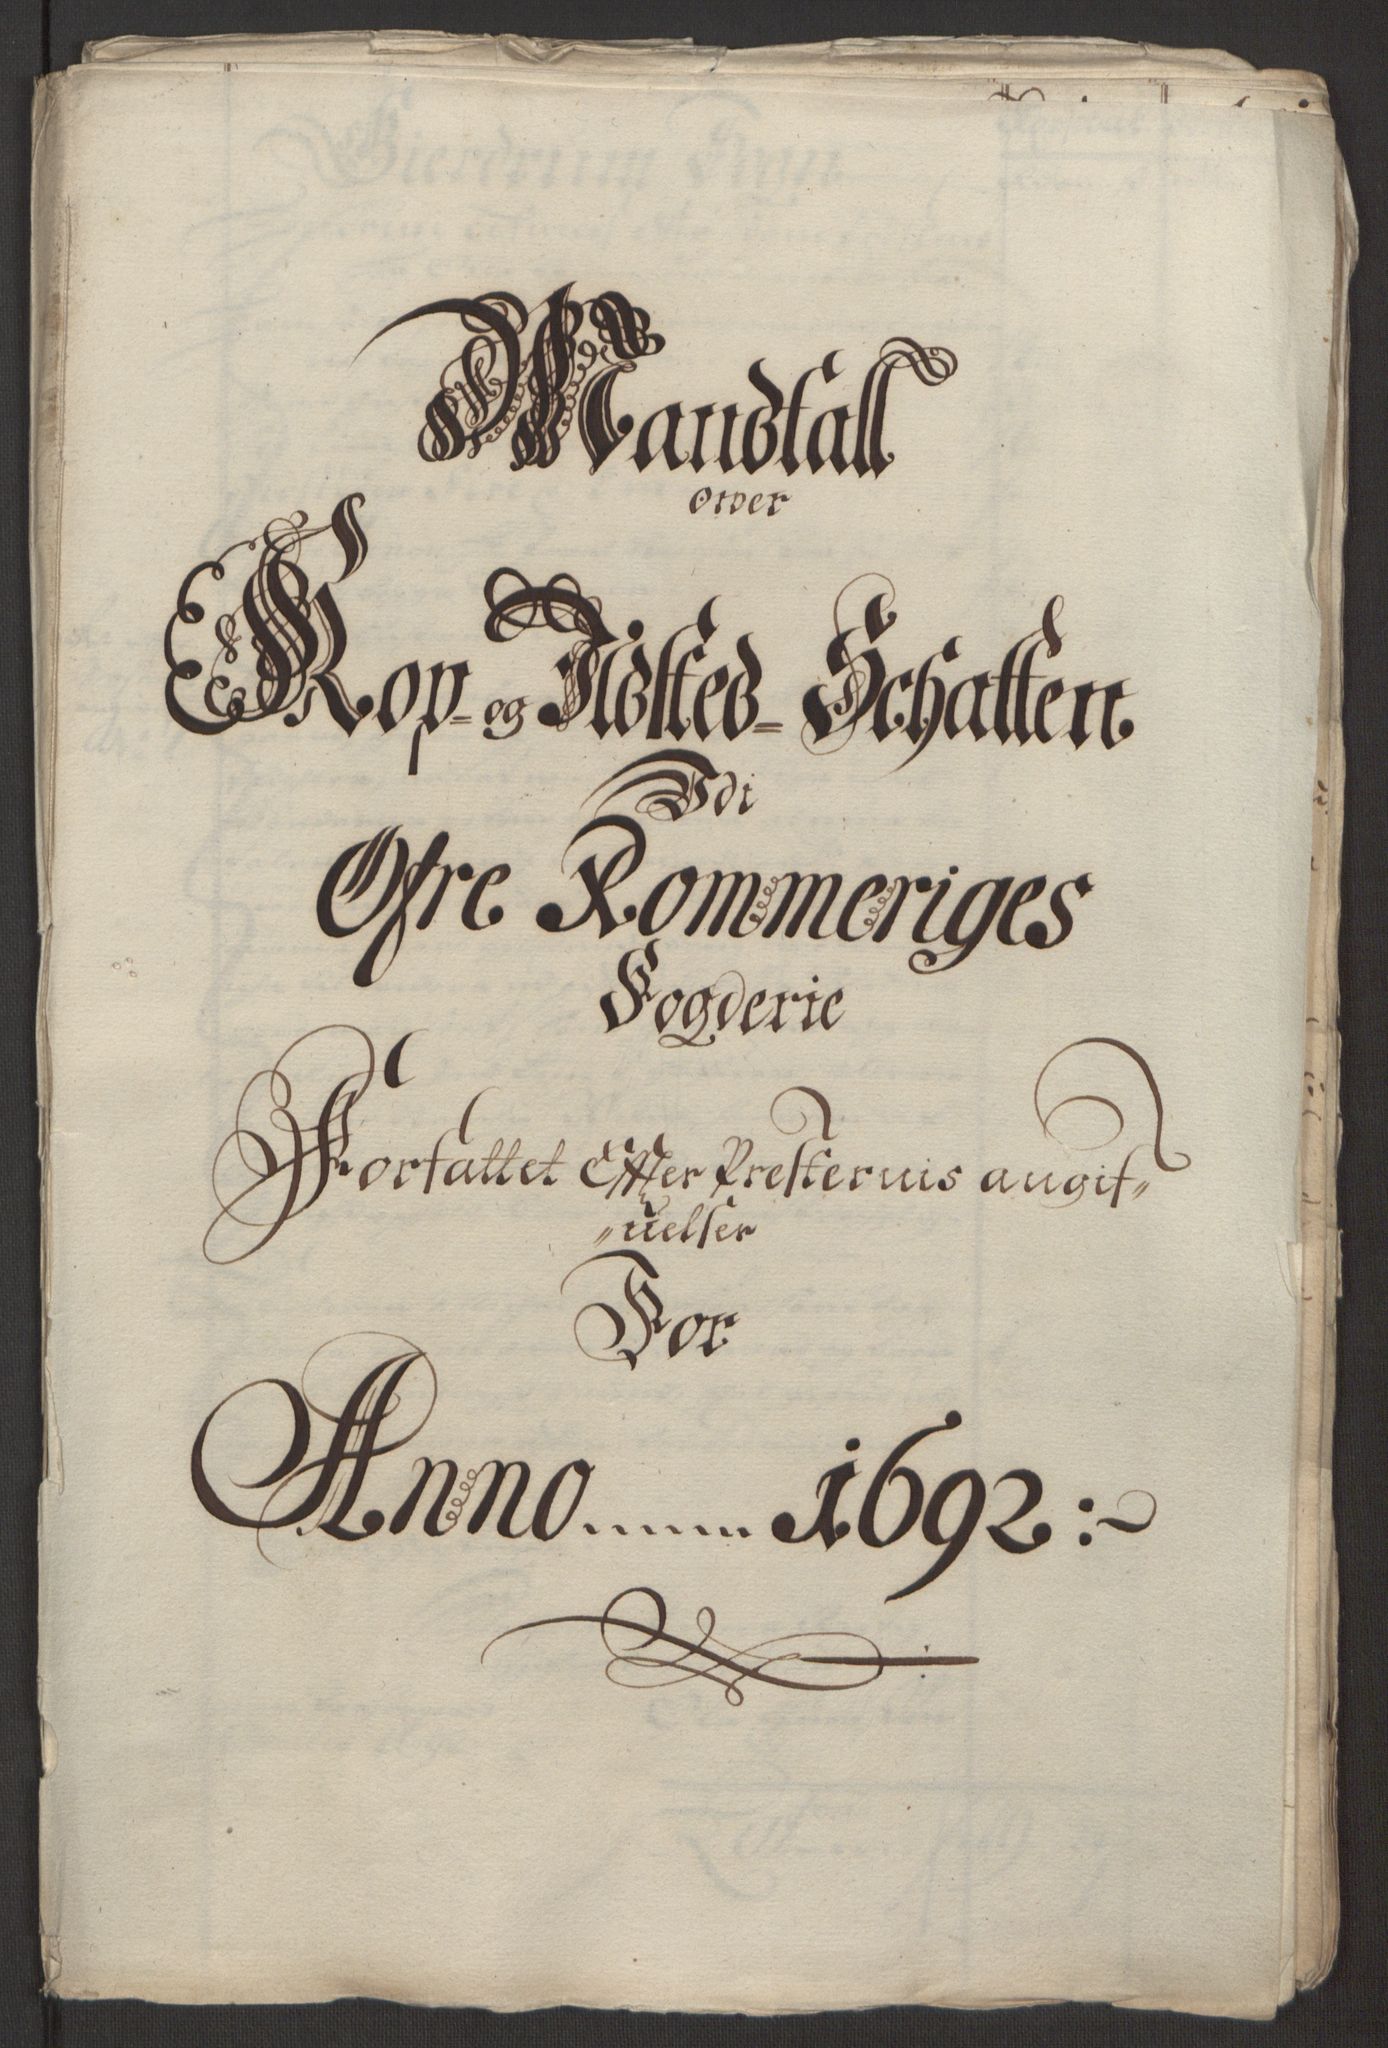 Mandtall
ower
Kop- og Ildsted- Schatten
Udi
Øfre Rommeriges
Fogderie
Forfattet Effter Presternis angif-
-uelser
For
Anno ...... 1692 :~